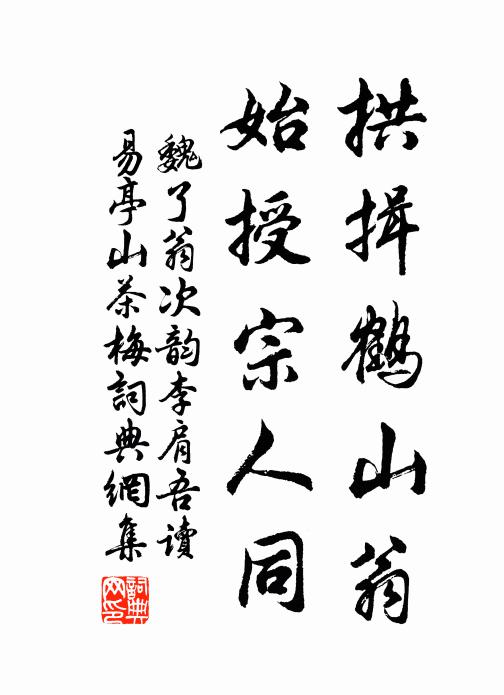 拱揖鶴山翁
始授宗人同
魏了翁次韵李肩吾讀
易亭山茶梅詞典網集